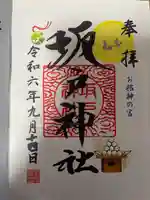 奉拝
お稲神の宮
坂戸神社
令和六年九月十四日